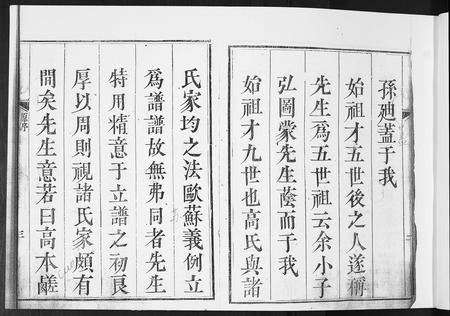 孫廸蓋于我
始祖才五世後之人遂稱
先生爲五世祖云余小子
弘圖蒙先生蔭而于我
始祖才九世也高氏與諸
氏家均之法歐蘇義例立
爲譜譜故無弗同者先生
特用精意于立譜之初良
厚以周則視諸氏家頗有
間矣先生意若曰高本鹺
原序
三